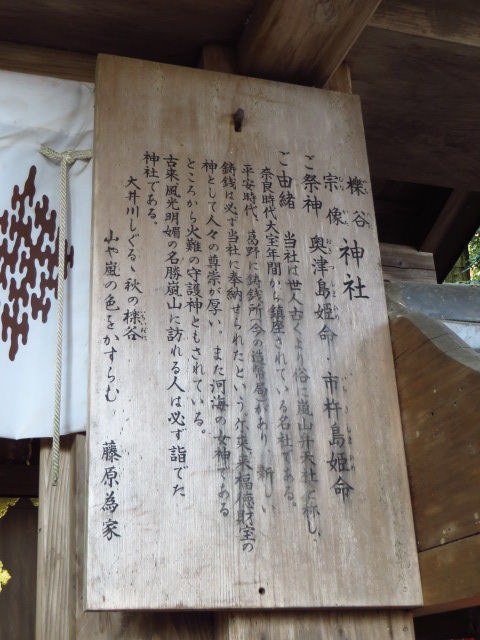 櫟谷
宗像
神社
ご祭神 奥津島姫命・市杵島姫命
ご由緒 当社は世人古くより俗に嵐山弁天社と称し、
奈良時代大宝年間から鎮座されている名社である。
平安時代、葛野に鋳銭所(今の造幣局)があり、新しい
鋳銭は必ず当社に奉納せられたという。尓来、来福徳財宝の
神として人々の尊崇が厚い。また河海の女神である
ところから火難の守護神ともされている。
古来、風光明媚の名勝嵐山に訪れる人は必ず詣でた
神社である。
大井川しぐるゝ秋の櫟谷
山や嵐の色をかすらむ
藤原為家